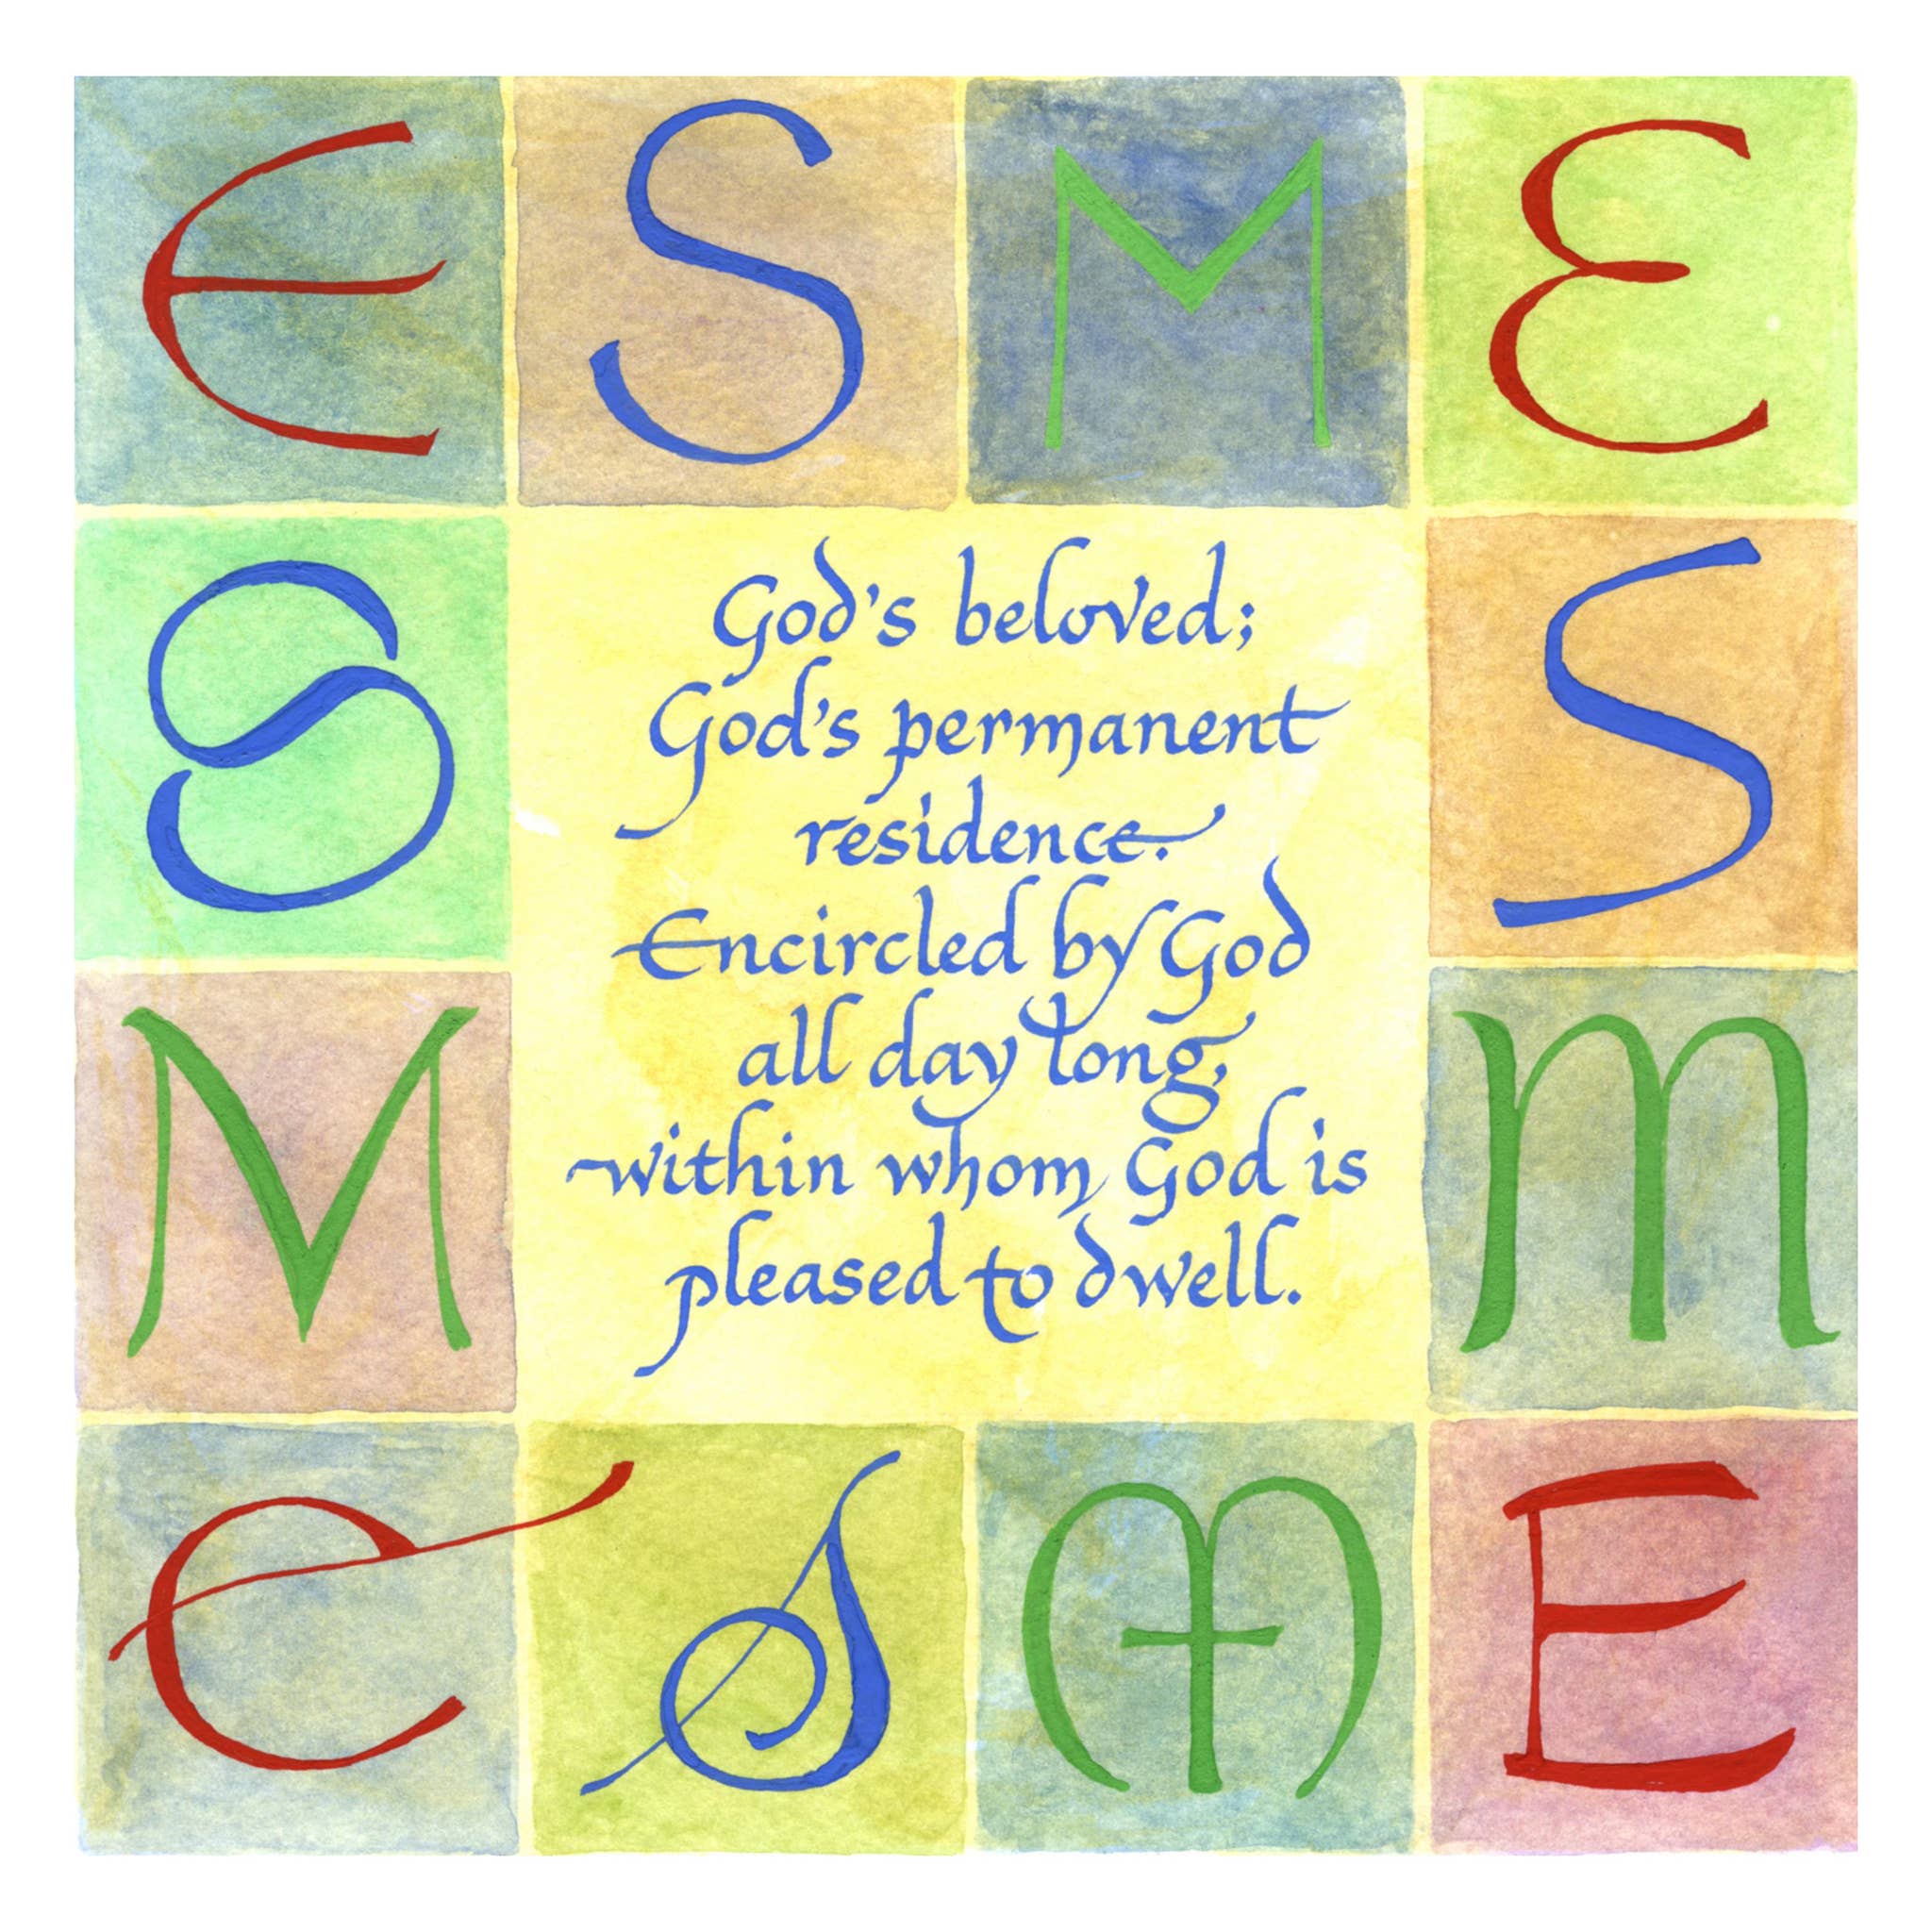 E S M E
S S
M M
E S M E
God's beloved;
God's permanent
residence.
Encircled by God
all day long,
within whom God is
pleased to dwell.